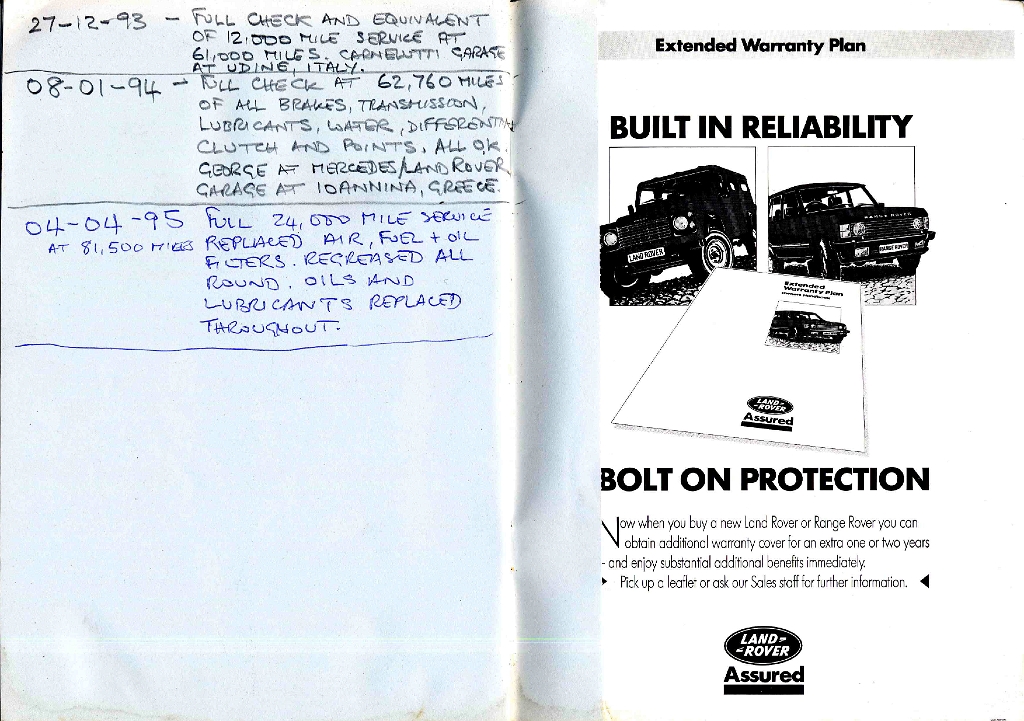 27-12-93 - FULL CHECK AND EQUIVALENT
OF 12,000 MILE SERVICE AT
61,000 MILES. CARNELUTTI GARAGE
AT UDINE, ITALY.
08-01-94 - FULL CHECK AT 62,760 MILES
OF ALL BRAKES, TRANSMISSION,
LUBRICANTS, WATER, DIFFERENTIAL
CLUTCH AND POINTS. ALL OK.
GEORGE AT MERCEDES/LAND ROVER
GARAGE AT IOANNINA, GREECE.
04-04-95 FULL 24,000 MILE SERVICE
AT 81,500 MILES REPLACED AIR, FUEL + OIL
FILTERS. REGREASED ALL
ROUND. OILS AND
LUBRICANTS REPLACED
THROUGHOUT.
Extended Warranty Plan
BUILT IN RELIABILITY
LAND ROVER
RANGE ROVER
RANGE ROVER
Extended
Warranty Plan
LAND-
-ROVER
Assured
BOLT ON PROTECTION
Now when you buy a new Land Rover or Range Rover you can
obtain additional warranty cover for an extra one or two years
- and enjoy substantial additional benefits immediately.
Pick up a leaflet or ask our Sales staff for further information.
LAND-
-ROVER
Assured